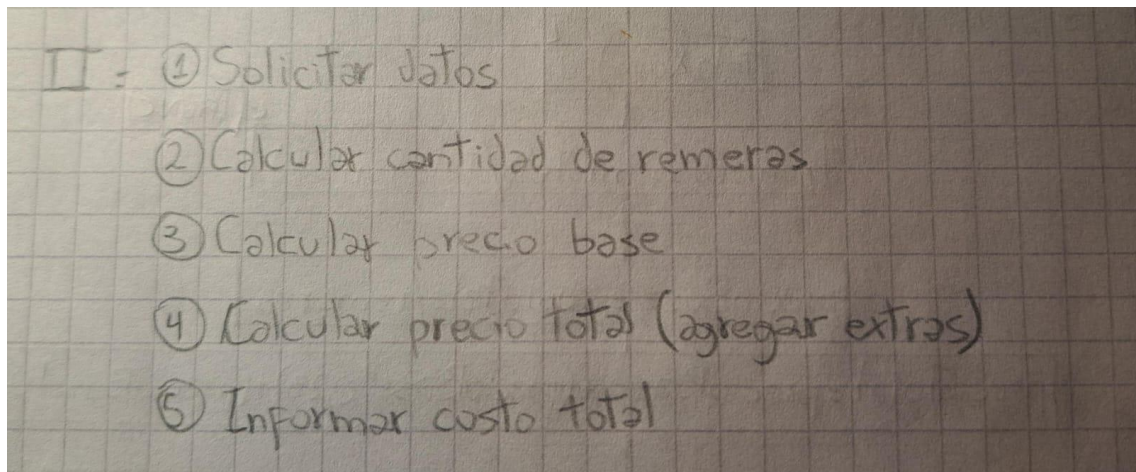 II = ① Solicitar datos
② Calcular cantidad de remeras
③ Calcular precio base
④ Calcular precio total (agregar extras)
⑤ Informar costo total